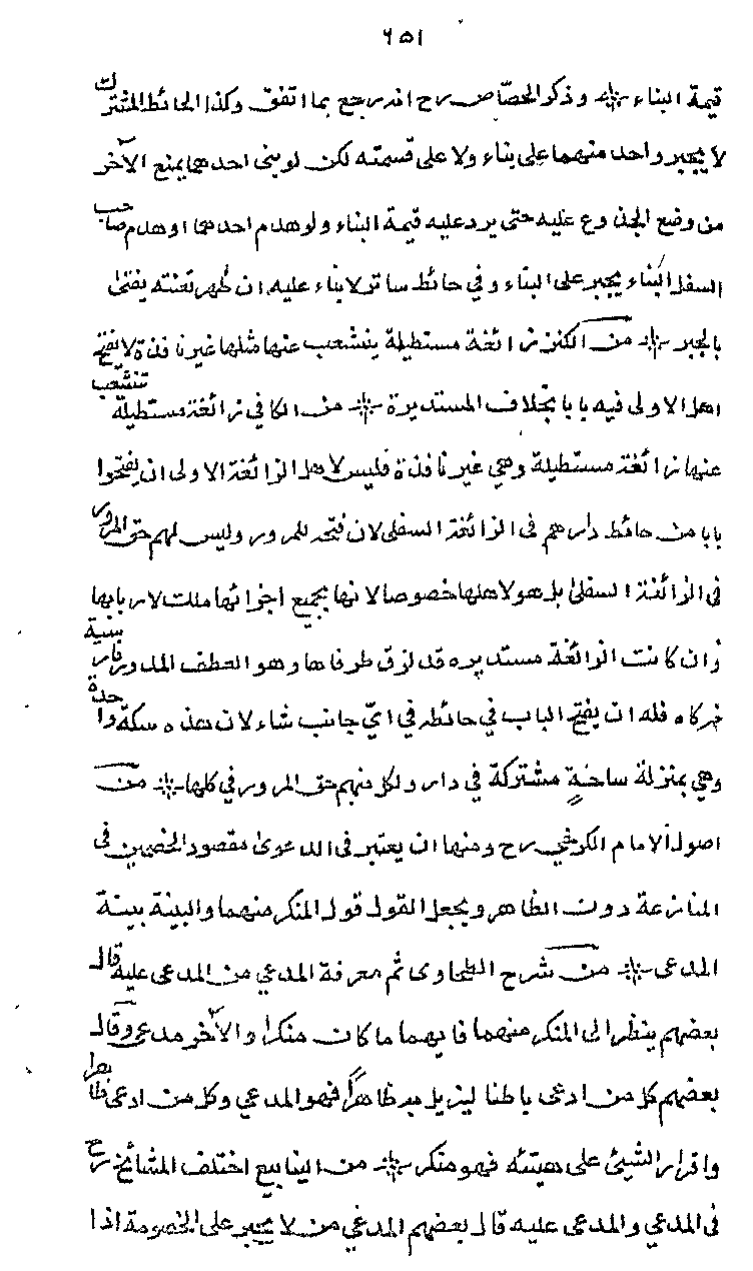 ٦٥١
قيمة البناء وذكر الخصاص رح انه رجع بما اتفق وكذا الحائط المشترك
لا يجبر واحد منهما على بناء ولا على قسمته لكن لو بنى احدهما يمنع الآخر
من وضع الجذوع عليه حتى يرد عليه قيمة البناء ولو هدم احدهما او هدم صاحب
السفل البناء يجبر على البناء وفي حائط ساتر لا بناء عليه ان ظهر تعنته يفتى
بالجبر من الكنز زائغة مستطيلة ينشعب عنها مثلها غير نافذة لا يفتح
اهل الاولى فيه بابا بخلاف المستديرة من الكافي زائغة مستطيلة تنشعب
عنها زائغة مستطيلة وهي غير نافذة فليس لاهل الزائغة الاولى ان يفتحوا
بابا من حائط دارهم في الزائغة السفلى لان فتحه للمرور وليس لهم حق المرور
في الزائغة السفلى بل هو لاهلها خصوصا لانها بجميع اجزائها ملك لاربابها
وان كانت الزائغة مستديره قد لزق طرفاها وهو العطف المدور بفارسية
خركاه فله ان يفتح الباب في حائطه في اي جانب شاء لان هذه سكة واحدة
وهي بمنزلة ساحةٍ مشتركة في دار ولكل منهم حق المرور في كلها من
اصول الامام الكرخي رح ومنها ان يعتبر في الدعوى مقصود الخصمين في
المنازعة دون الظاهر ويجعل القول قول المنكر منهما والبينة بينة
المدعى من شرح الطحاوى ثم معرفة المدعي من المدعى عليه قال
بعضهم ينظر الى المنكر منهما فايهما ما كان منكرا والآخر مدعى وقال
بعضهم كل من ادعى باطنا ليزيل به ظاهراً فهو المدعي وكل من ادعى ظاهرا
واقرار الشيئ على هيئته فهو منكر من الينابيع اختلف المشائخ رح
في المدعي والمدعى عليه قال بعضهم المدعي من لا يجبر على الخصومة اذا